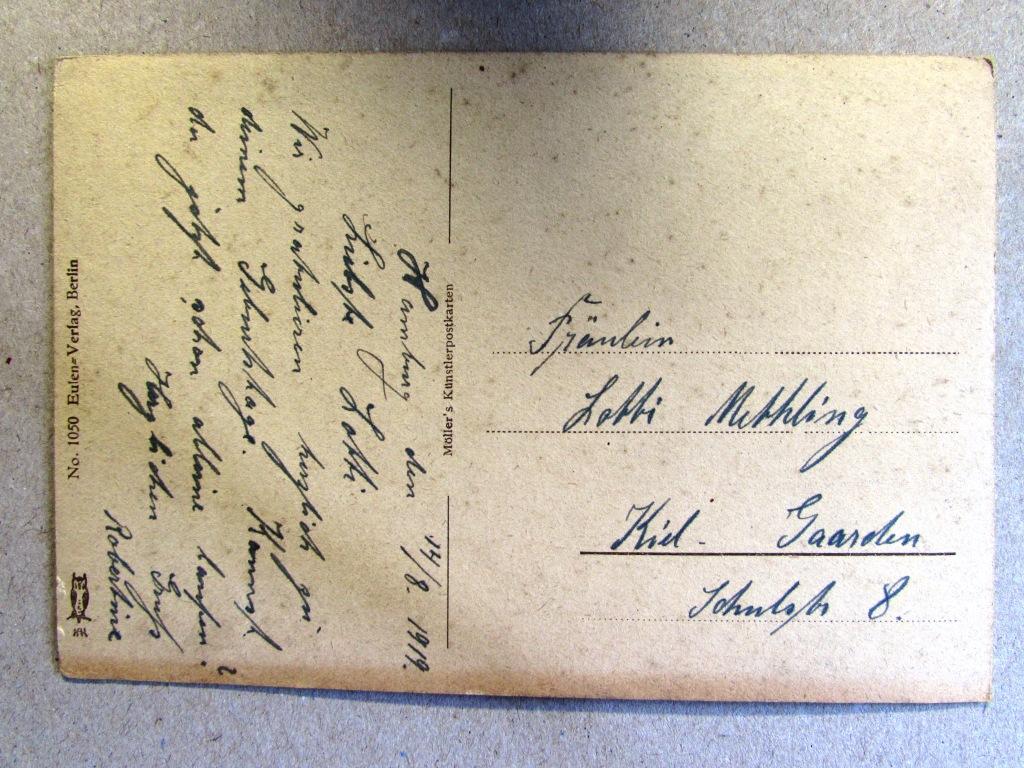 Hamburg den 14/8. 1919.
Liebste Lotti.
Wir gratulieren herzlich zu
deinem Geburtstage. Kannst
du jetzt schon alleine laufen.?
Herzlichen Gruß
Robertine
No. 1050 Eulen=Verlag, Berlin
Möller's Künstlerpostkarten
Fräulein
Lotti Methling
Kiel - Gaarden
Schulstr 8.